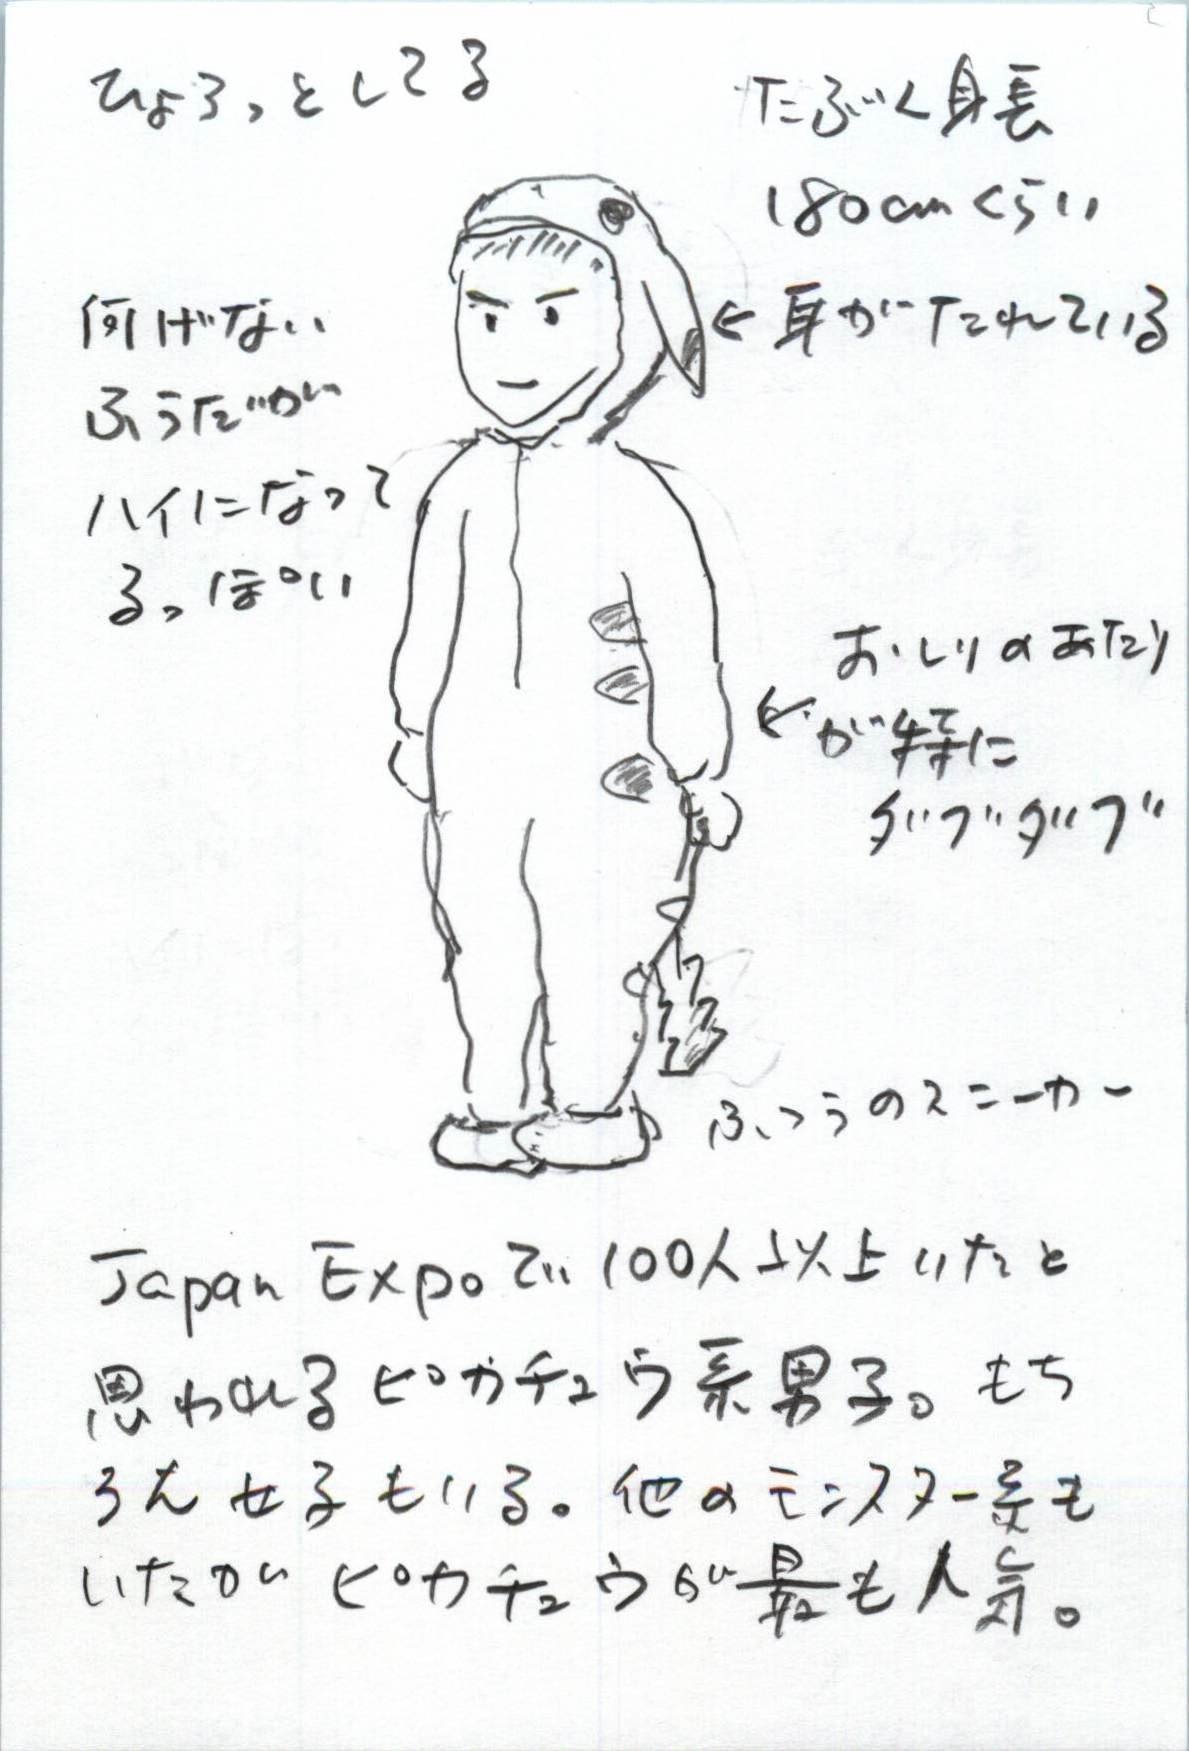 ひょろっとしてる
たぶん身長
180cmくらい
←耳がたれている
何げない
ふうだが
ハイになって
るっぽい
おしりのあたり
←が特に
ダブダブ
ふつうのスニーカー
Japan Expoで100人以上いたと
思われるピカチュウ系男子。もち
ろん女子もいる。他のモンスター系も
いたがピカチュウが最も人気。